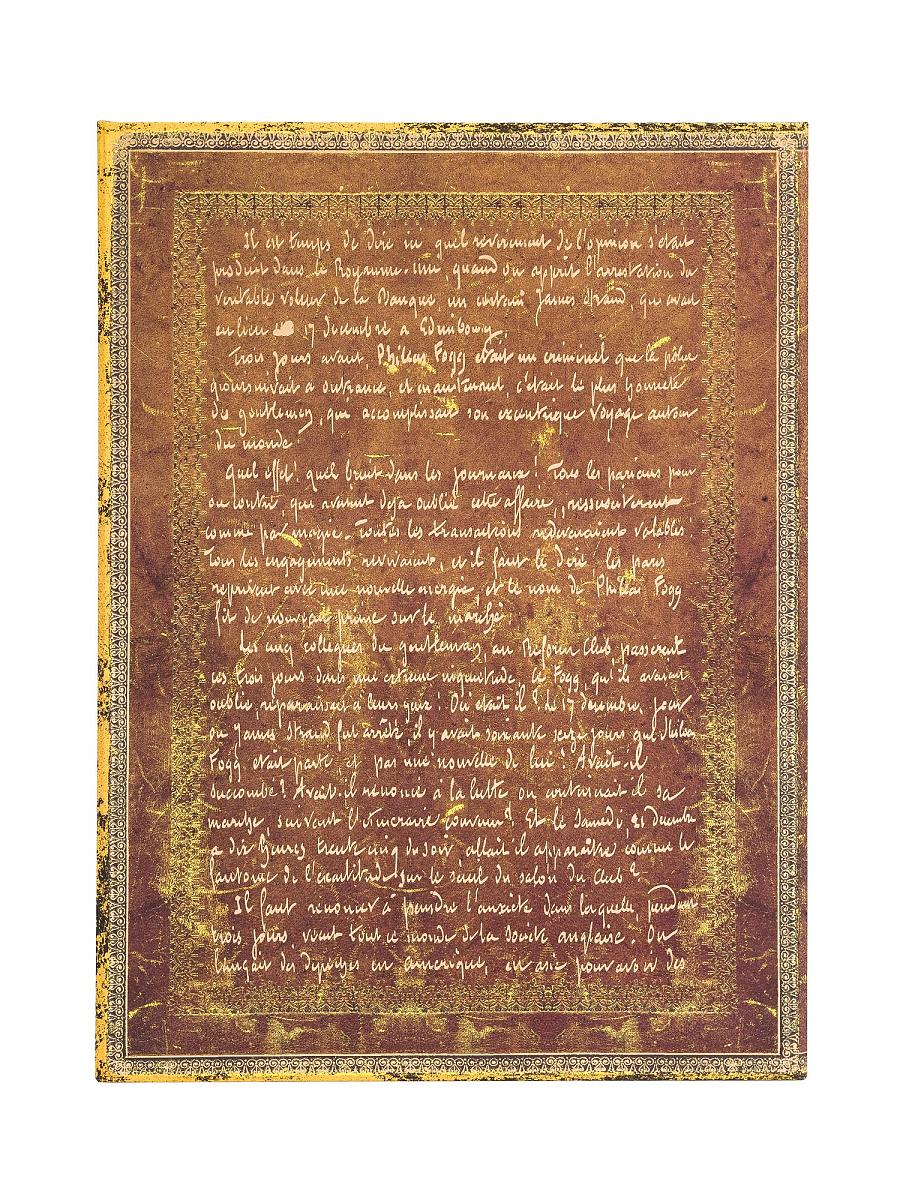 Il est temps de dire ici quel revirement de l'opinion s'était
produit dans le Royaume-Uni, quand on apprit l'arrestation du
veritable voleur de la Banque, un certain James Strand, qui avait
eu lieu 17 decembre a Edimbourg.
Trois jours avant, Phileas Fogg était un criminel que la police
poursuivait a outrance, et maintenant, c'était le plus honnete
des gentlemen, qui accomplissait son excentrique voyage autour
du monde.
Quel effet! quel bruit dans les journaux! Tous les parieurs pour
ou contre, qui avaient deja oublié cette affaire, ressusciterent
comme par magie. Toutes les transactions redevenaient valables.
Tous les engagements revivaient, et il faut le dire, les paris
reprirent avec une nouvelle energie, et le nom de Phileas Fogg
fit de nouveau prime sur le marché.
Les cinq collegues du gentleman, au Reform Club, passerent
ces trois jours dans une extreme inquietude. Ce Fogg, qu'il avaient
oublié, reparaissait a leurs yeux! Où était il? Le 17 decembre, jour
ou James Strand fut arrêté, il y avait soixante seize jours que Phileas
Fogg etait parti, et pas une nouvelle de lui! Avait-il
succombé? Avait-il renoncé à la lutte ou continuait il sa
marche, suivant l'itineraire convenu? Et le Samedi, 21 Decembre
a dix heures trente cinq du soir allait il apparaître comme le
de l'exactitude, sur le seuil du salon du Club?
Il faut renoncer à peindre l'anxieté dans laquelle, pendant
trois jours, vecut tout ce monde de la Societé anglaise. On
lançait des depeches en Amerique, en asie pour avoir des